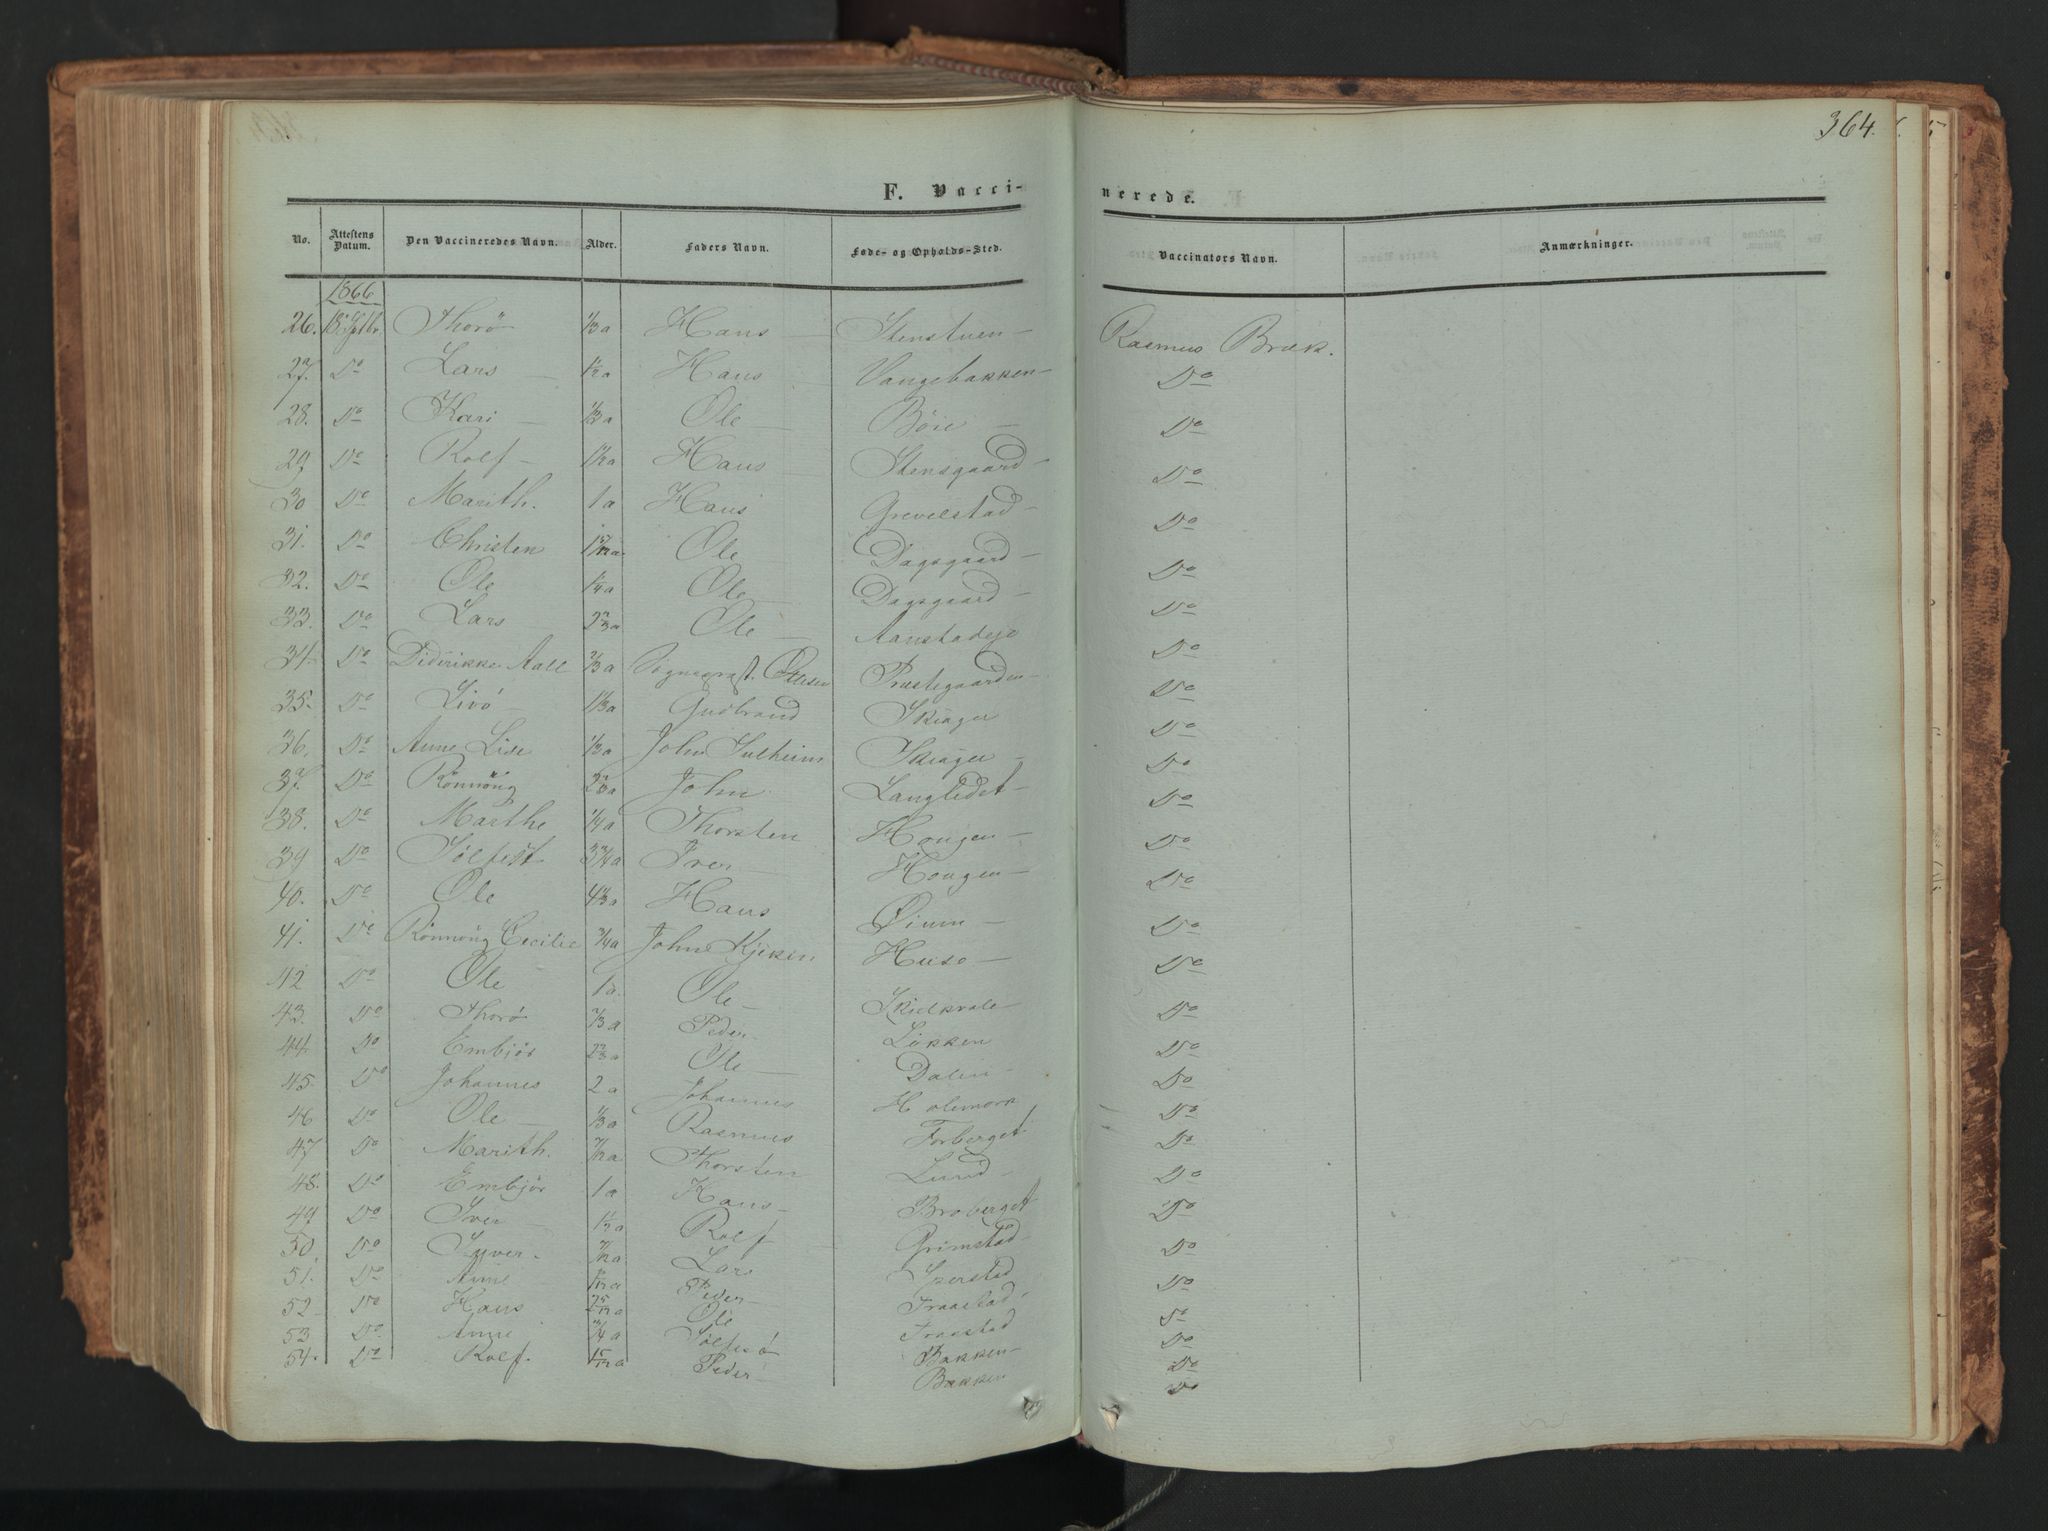 364.
F. Vacci-nerede.
No. Attestens Datum. Den Vaccineredes Navn. Alder. Faders Navn. Føde- og Opholds-Sted. Vaccinators Navn. Anmærkninger.
1866
26. 18. Septbr Thorø 1/3 a Hans Stenstuen Rasmus Bræk.
27. Do Lars 1/2 a Hans Vangebakken Do
28. Do Kari 1/3 a Ole Böie Do
29 Do Rolf 1 1/2 a Hans Stensgaard Do
30 Do Marith. 1 a Hans Grevelstad Do
31. Do Christen Ole Dagsgaard Do
32. Do Ole 1/4 a Ole Dagsgaard Do
33. Do Lars 2 2/3 a Ole Aanstadeje Do
34 Do Didrikke Aall 2/3 a Sognepræst. Ottesen Præstegaarden Do
35. Do Livö 1/3 a Gudbrand Skiager Do
36. Do Anne Lise 1/3 a John Sulheim Skiager Do
37. Do Rönnöug 2 2/3 a John Langledet Do
38. Do Marthe 1/4 a Thorsten Hougen Do
39 Do Sölfest 3 3/4 a Iver Hougen Do
40. Do Ole Hans Öium Do
41. Do Rönnöug Cecilie 3/4 a John Kjæken Huso Do
42 Do Ole 1 a. Ole Skielkvale Do
43. Do Thorø 2/3 a Peder Løkken Do
44. Do Embjør 2 2/3 a Ole Dalen Do
45. Do Johannes 2 a Johannes Holemork Do
46 Do Ole 1/3 a Rasmus Forberget Do
47 Do Marith. 7/12 a Thorsten Lund Do
48. Do Embjör 1 a Hans Broberget Do
49 Do Iver 1/2 a Rolf Grimstad Do
50 Do Syver. 7/12 a Lars Do
51. Do Anne Peder Fraastad Do
52 Do Hans 2 5/12 a Ole Fraastad Do
53 Do Anne 3/4 a Bakken Do
54. Do Rolf. Peder Bakken Do